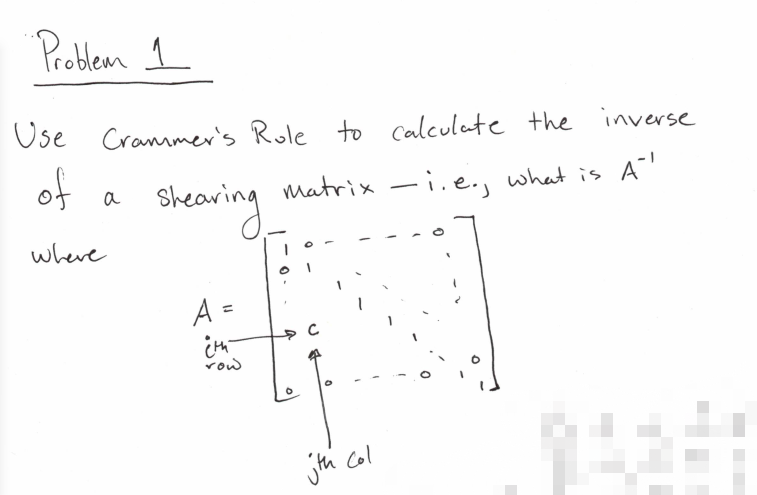 Problem 1
Use Crammer's Rule to calculate the inverse
of a shearing matrix — i.e., what is A⁻¹
where
1 0 - - - - 0
0 1
1
1
A =
1
ith → c
1
row
0
0 0 - - - 0 1
1
jth Col